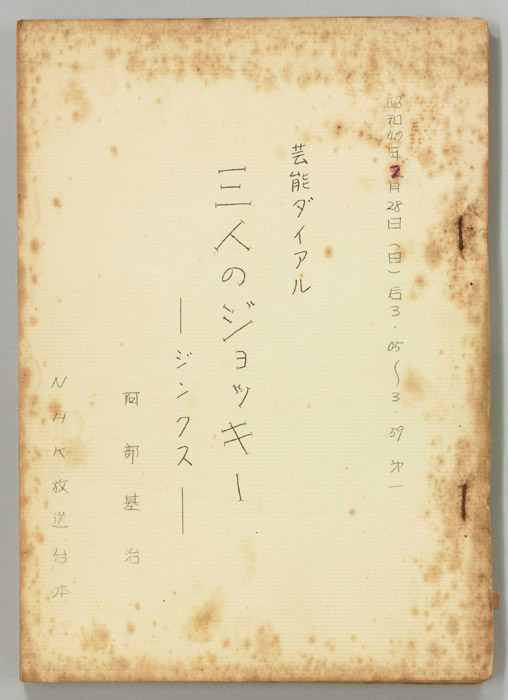 昭和40年2月28日(日)后3.05〜3.39 㐧一
芸能ダイアル
三人のジョッキー
―ジンクス―
阿部基治
NHK放送台本